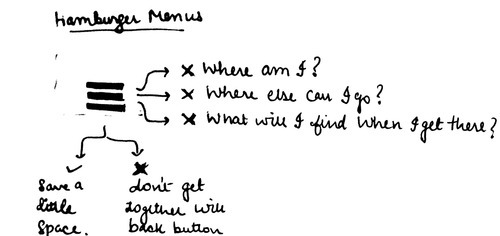 Hamburger Menus
× Where am I?
× Where else can I go?
× What will I find when I get there?
✓
Save a
little
Space.
×
don't get
together will
back button